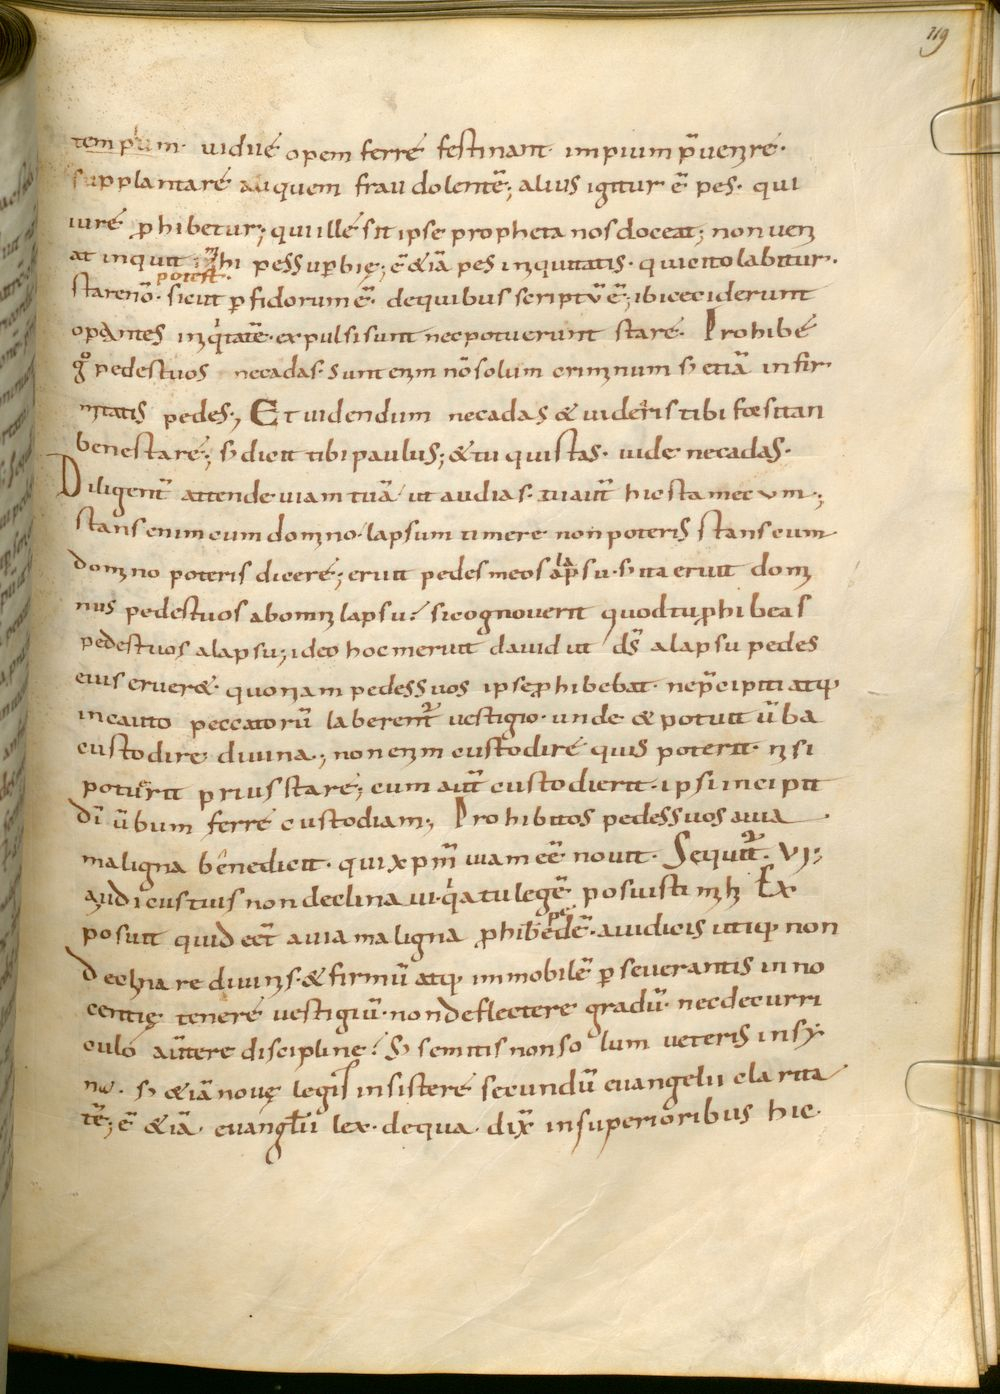 119
templum. uidue opem ferre festinant. impium p̄uenire.
supplantare aliquem fraudolentē; alius igitur ē pes. qui
iure ꝓhibetur; qui ille sit ipse propheta nos doceat; non ueni
at inquit mihi pes suꝑbię; ē &iā pes iniquitatis. qui cito labitur.
potest.
stare nō. sicut ꝑfidorum ē. de quibus scriptū ē; ibi ceciderunt
operantes iniq̇tatē. expulsi sunt nec potuerunt stare. Prohibe
gͦ pedes tuos ne cadas. Sunt enim nō solum criminum sꝫ etiā infir
mitatis pedes; Et uidendum ne cadas & uideris tibi forsitan
bene stare; sꝫ dicit tibi paulus; & tu qui stas. uide ne cadas.
Diligent̄ attende uiam tuā ut audias. tu aut̄ hic sta mecum;
stans enim cum domino. lapsum timere non poteris stans cum
domino poteris dicere; eruit pedes meos a lapsu. sꝫ ita eruit domi
nus pedes tuos ab omni lapsu? si cognouerit quod tu ꝓhibeas
pedes tuos a lapsu; ideo hoc meruit dauid ut ds̄ a lapsu pedes
eius eruer&. quoniam pedes suos ipse ꝓhibebat. ne p̄cipiti atqꝫ
incauto peccatorū laberent̄ uestigio. unde & potuit ūba
custodire diuina; non enim custodire quis poterit. nisi
potuerit prius stare; cum aut̄ custodierit. ipsi incipit
dī ūbum ferre custodiam; Prohibitos pedes suos a uia
maligna bene dicit. qui xp̄m uiam eē nouit. Sequit̄. VI;
A iudiciis tuis non declinaui. q̇a tu legē posuisti mihi Ex
pe
posuit quid eēt a uia maligna ꝓhibe dē. a iudiciis utiqꝫ non
declinare diuinis. & firmū atqꝫ immobilē ꝑseuerantis inno
centię tenere uestigiū. non deflectere gradū. nec de curri
culo auertere discipline? Sꝫ semitis non solum ueteris insy
nω. sꝫ &iā nouę legis insistere secundū euangelii clarita
tē; ē &iā euangłiū lex. de qua dix̄ in superioribus hic.